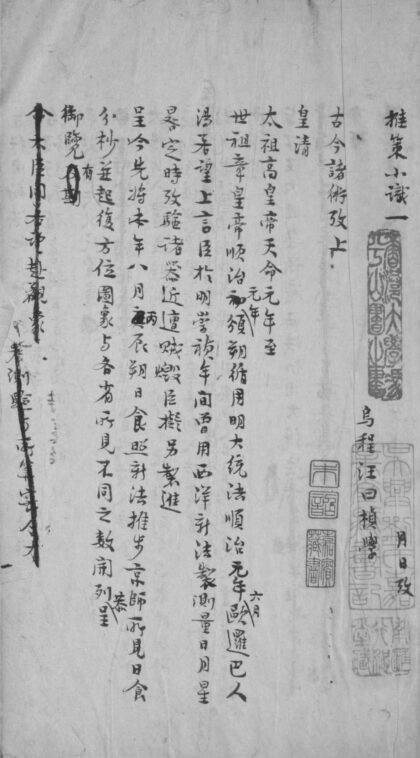 推策小識一
月日攷
烏程汪曰楨學
古今諸術攷上
皇清
太祖高皇帝天命元年至
世祖章皇帝順治元年頒朔循用明大統法順治元年六月歐邏巴人
湯若望上言臣於明崇禎年間曾用西洋新法製測量日月星
晷定時攷驗諸器近遭賊燬臣擬另製進
呈今先將本年八月丙辰朔日食照新法推步京師所見日食
分杪並起復方位圖象與各省所見不同之數開列恭呈
御覽有